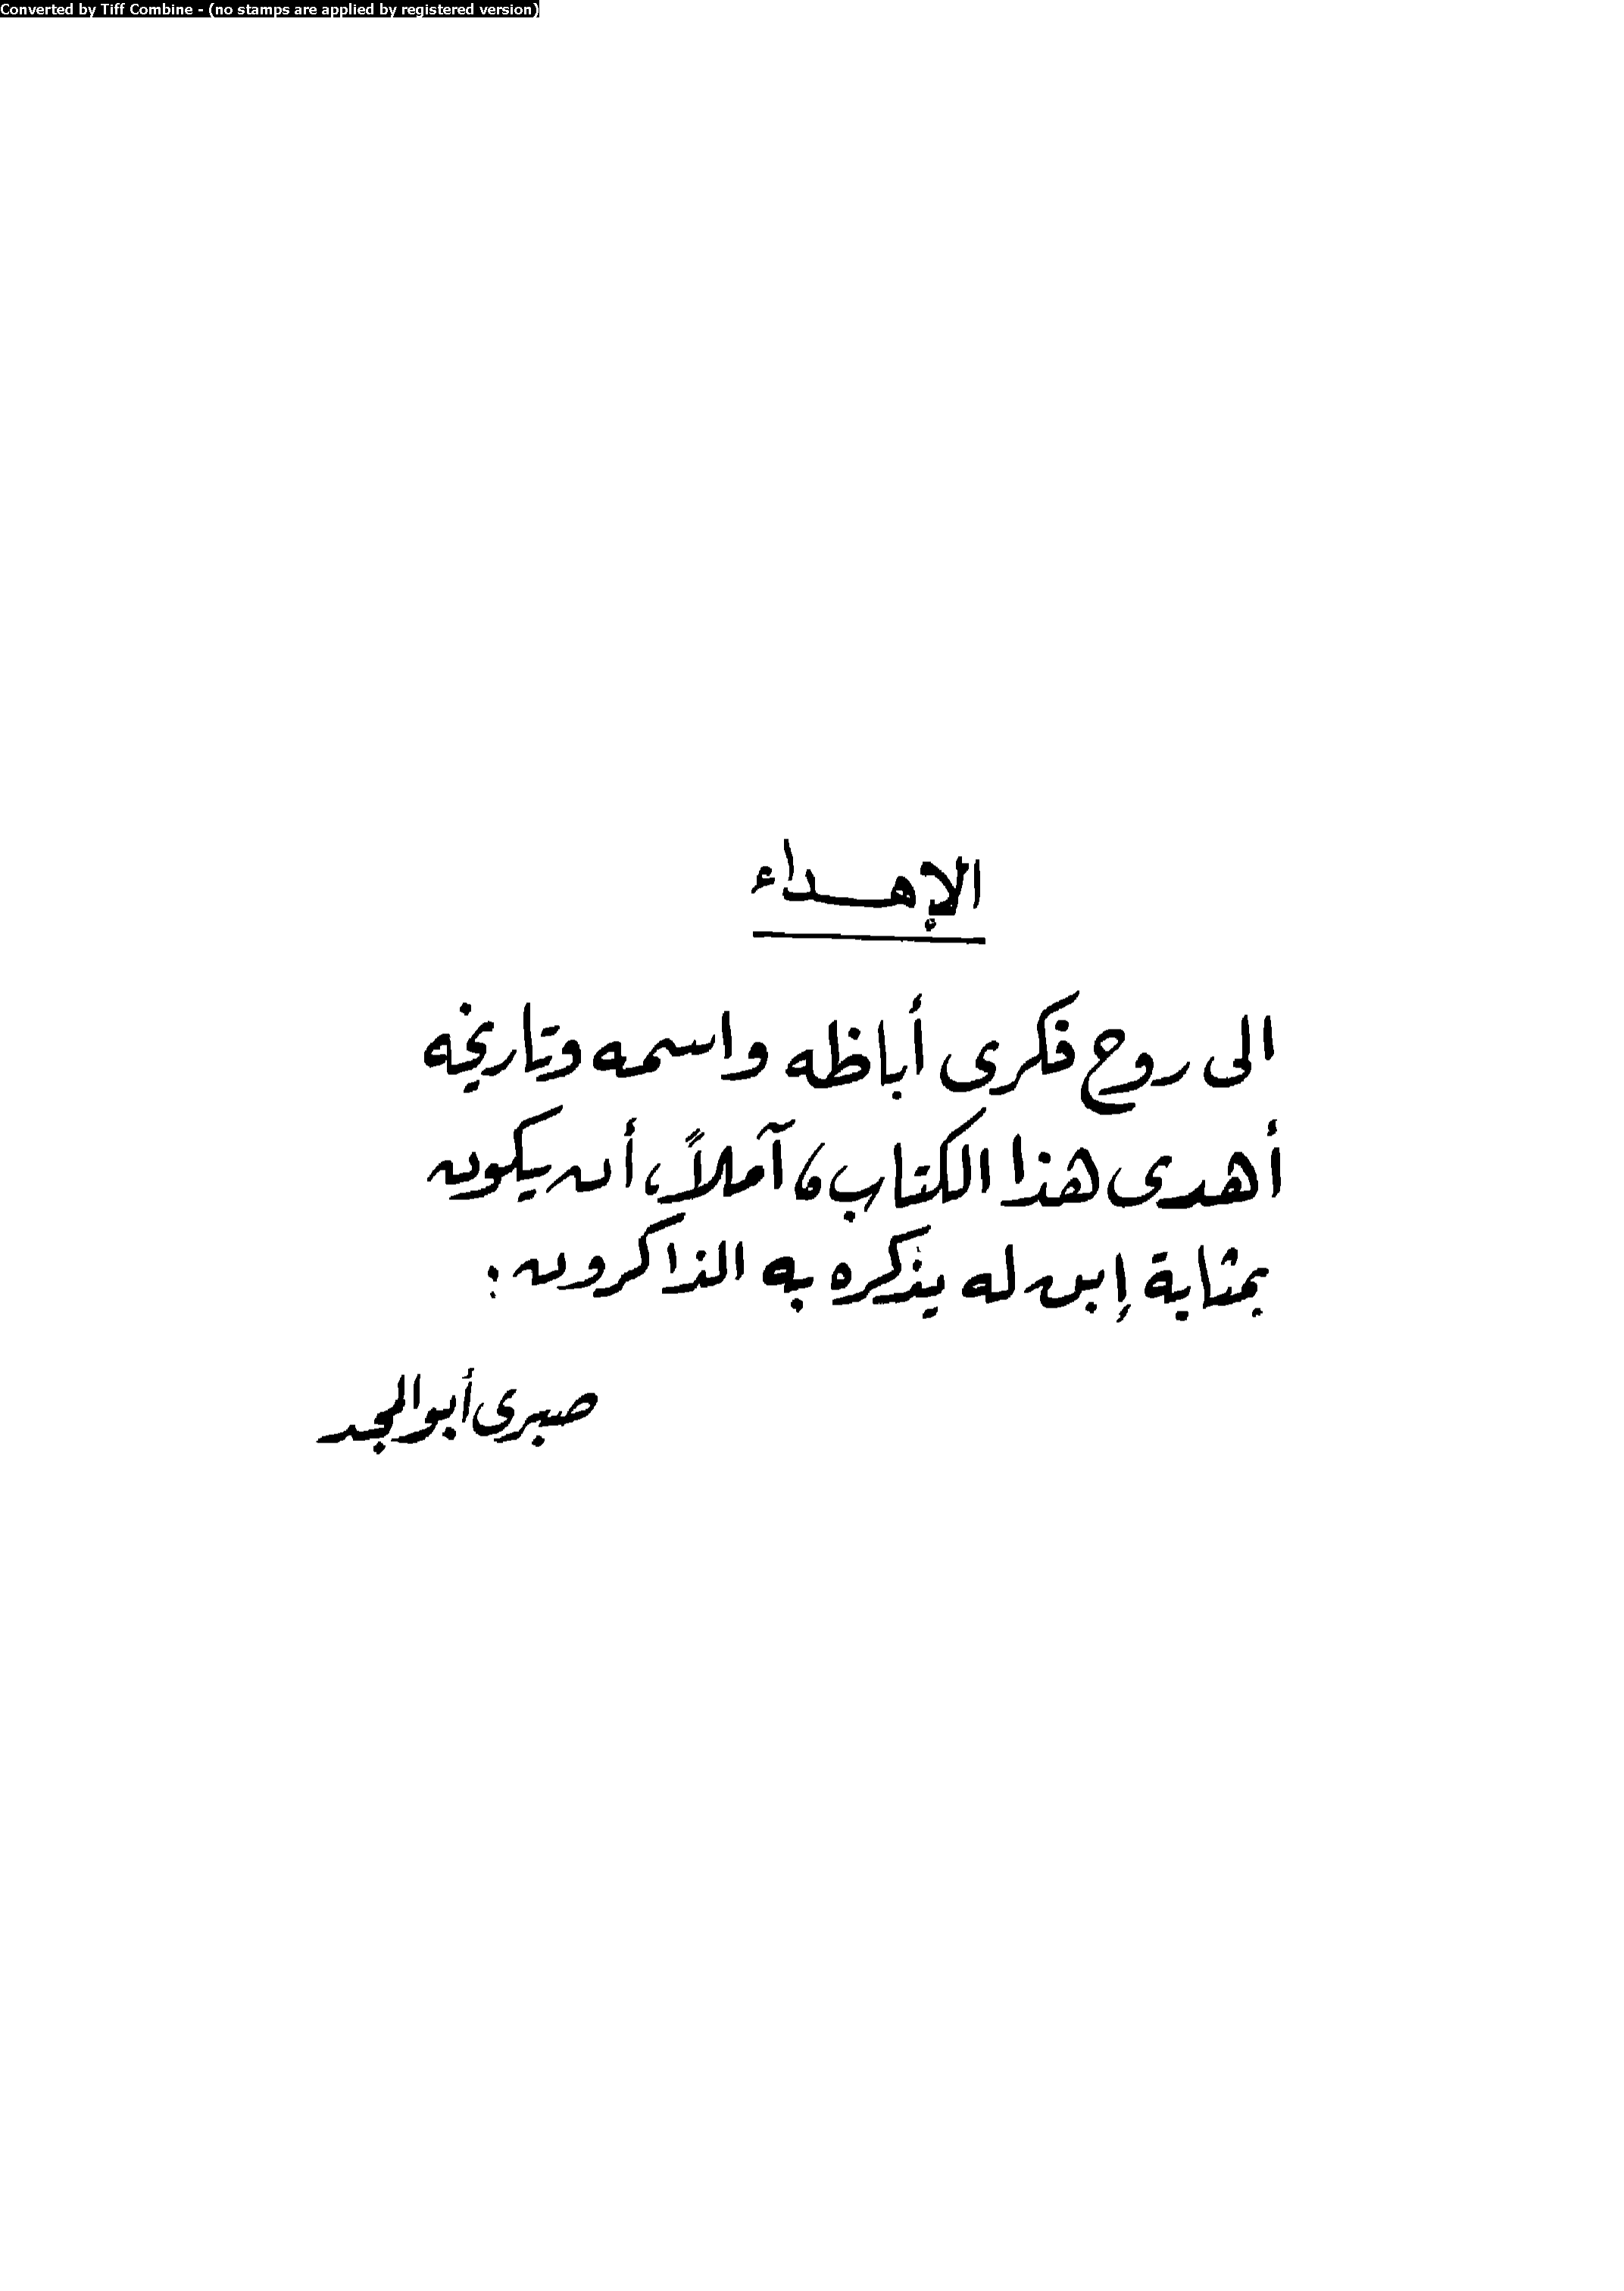 Converted by Tiff Combine - (no stamps are applied by registered version)
الإهداء
الى روح فكرى أباظه واسمه وتاريخه
أهدى هذا الكتاب، آملاً، أن يكون
بمثابة إبن له يذكره به الذاكرون :
صبرى أبو المجد